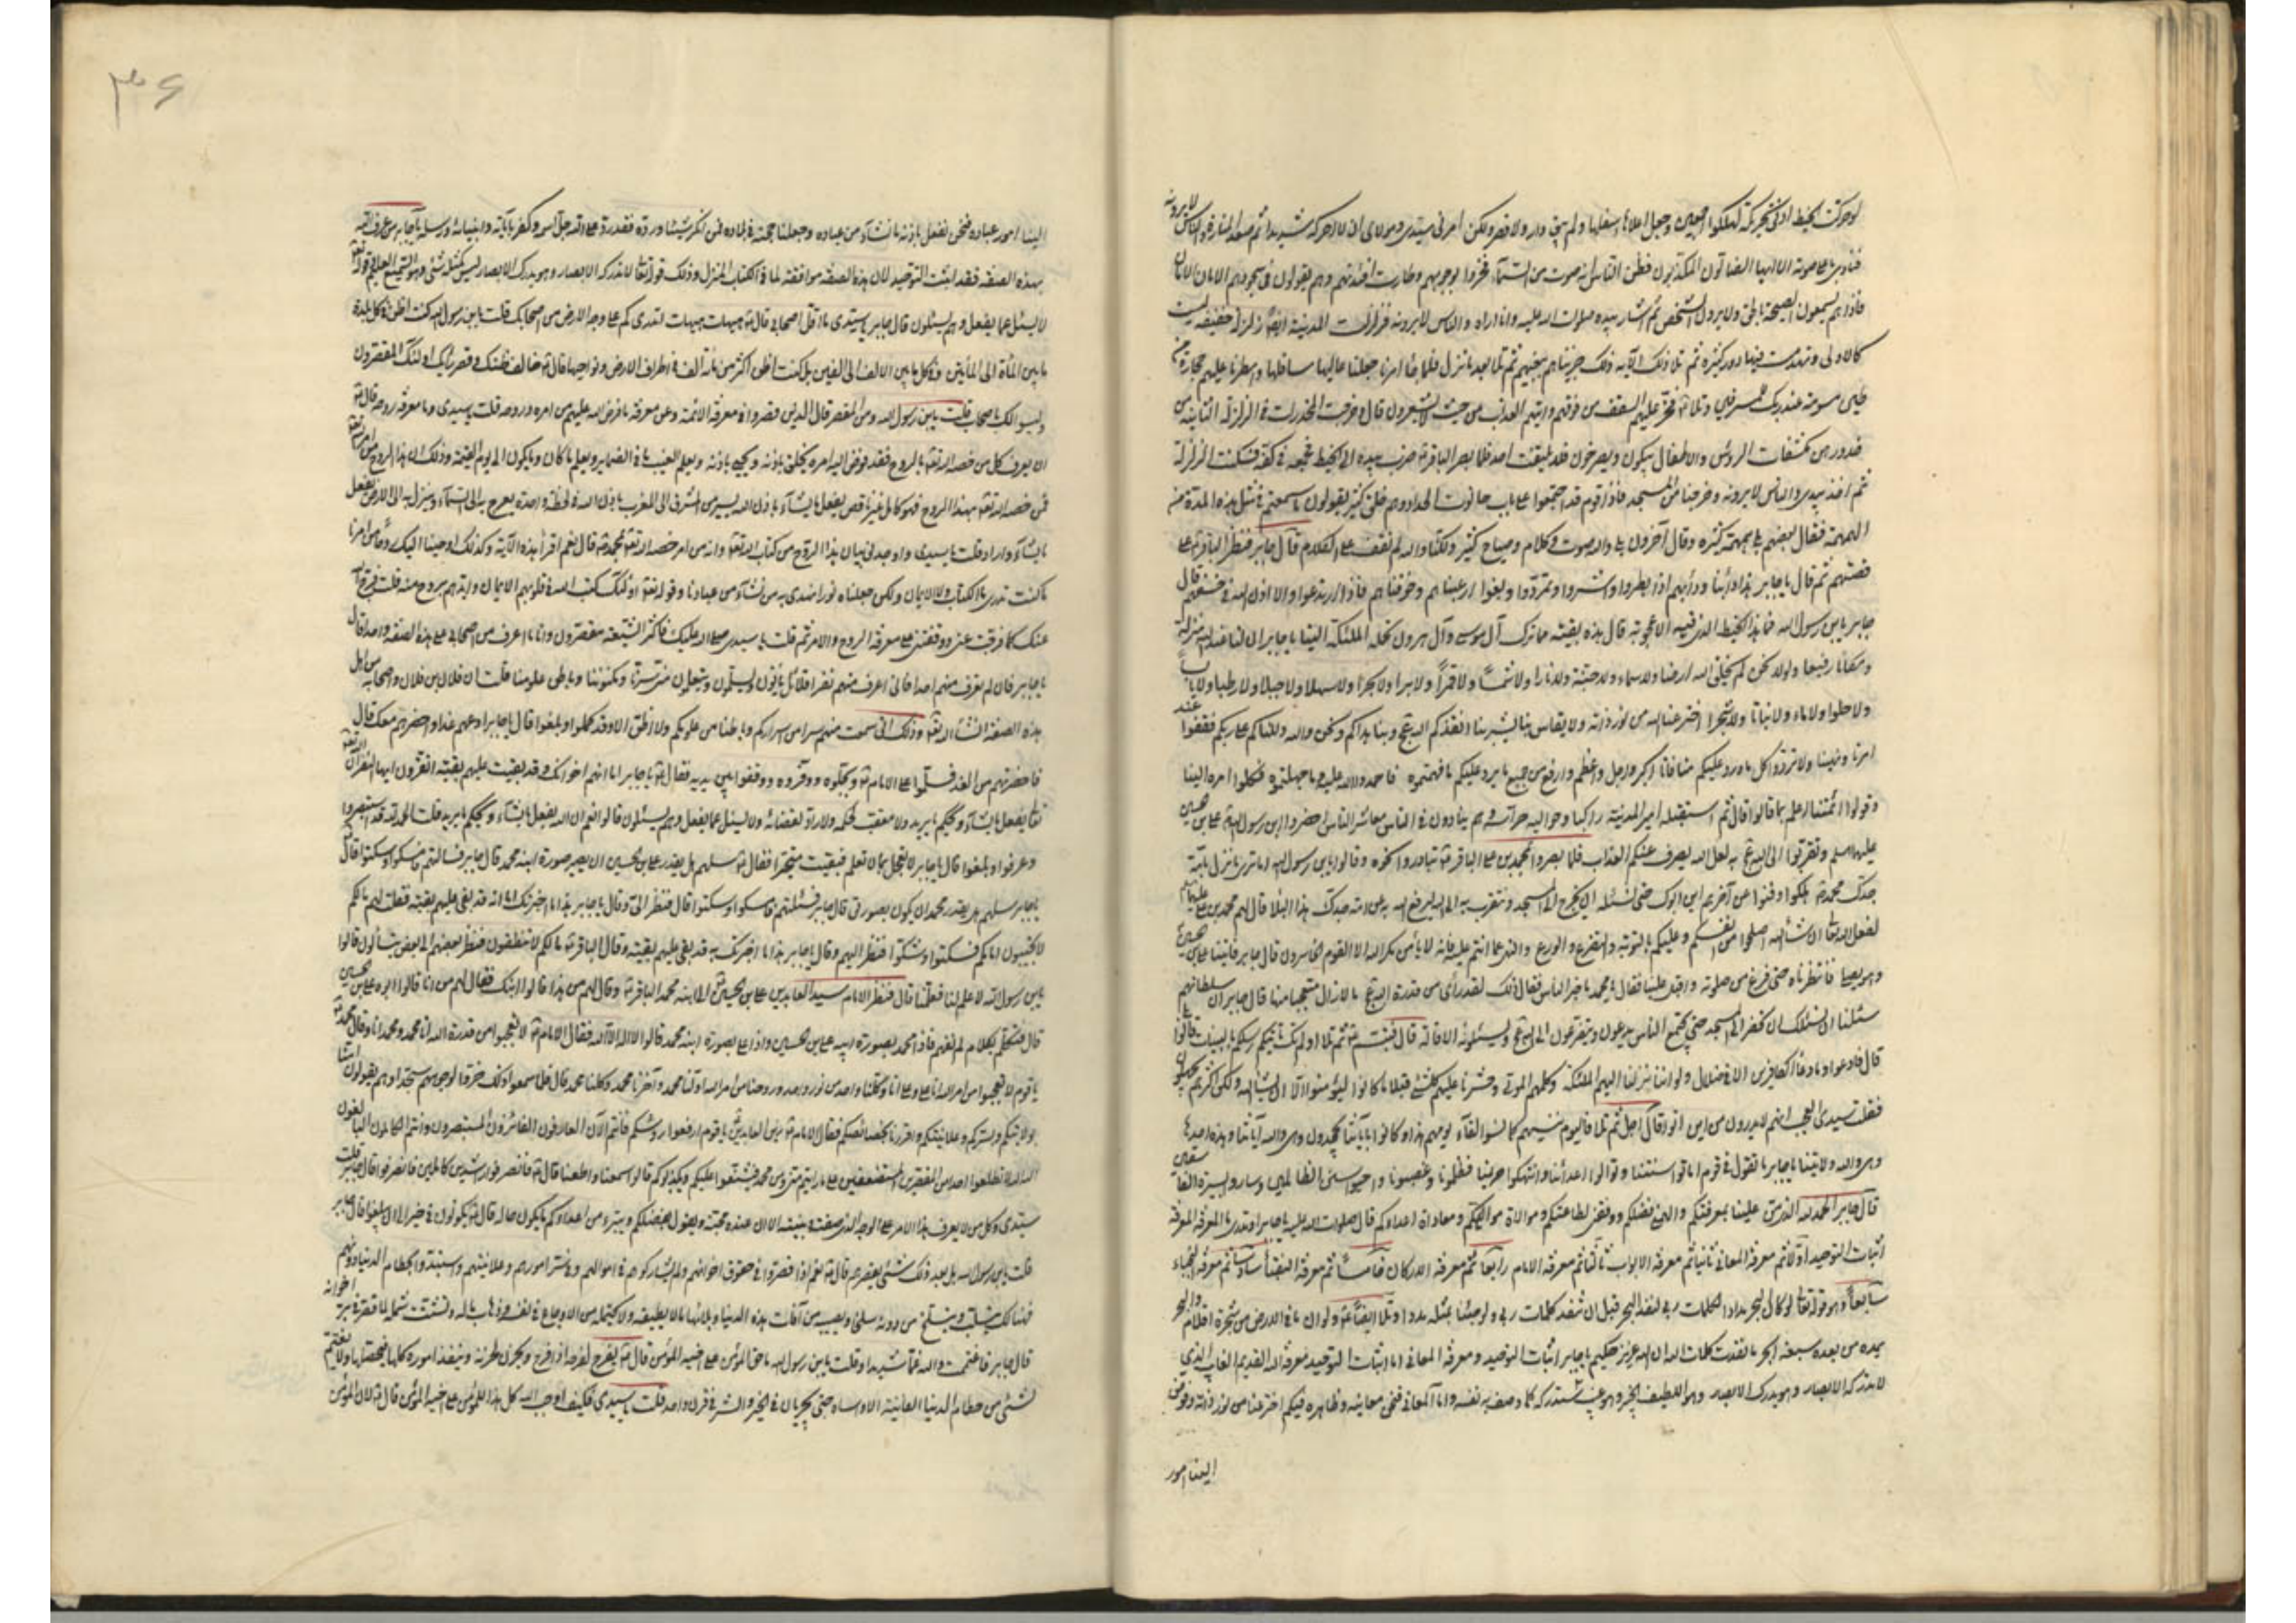 لوحركت الخيط ادنى تحريكة لهلكوا اجمعين وجعل اعلاها اسفلها ولم يبق دار ولا قصر ولكن امرنى سيدى ومولاى ان لا احركه شديدا ثم صعد المنارة والناس لا يرونه
فنادى باعلى صوته الا ايها الضالون المكذبون فظن الناس انه صوت من السماء فخروا لوجوههم وطارت افئدتهم وهم يقولون فى سجودهم الامان الامان
فاذا هم يسمعون الصيحة بالحق ولا يرون الشخص ثم اشار بيده صلوات الله عليه وانا اراه والناس لا يرونه فزلزلت المدينة ايضا زلزلة خفيفة ليست
كالاولى وتهدمت فيها دور كثيرة ثم تلا هذه الآية ذلك جزيناهم ببغيهم ثم تلا بعد ما نزل فلما جاء امرنا جعلنا عاليها سافلها وامطرنا عليهم حجارة من
طين مسومة عند ربك للمسرفين وتلا فخر عليهم السقف من فوقهم واتيهم العذاب من حيث لا يشعرون قال وخرجت المخدرات فى الزلزلة الثانية من
خدورهن مكشفات الرؤس والاطفال يبكون ويصرخون فلا يلتفت احد فلما بصر الباقر ضرب بيده الى الخيط فجمعه فى كفه فسكنت الزلزلة
ثم اخذ بيدى والناس لا يرونه وخرجنا من المسجد فاذا قوم قد اجتمعوا على باب حانوت الحداد وهم خلق كثير يقولون ما سمعتم فى مثل هذه المدرة من
الهمهمة فقال بعضهم بلى همهمة كثيرة وقال آخرون بلى والله صوت وكلام وصياح كثير ولكنا والله لم نقف على الكلام قال جابر فنظر الباقر على
قصتهم ثم قال يا جابر هذا دأبنا ودأبهم اذا بطروا واشروا وتمردوا وبغوا ارعبناهم وخوفناهم فاذا ارتدعوا والا اذن الله فى خسفهم قال
جابر يا بن رسول الله فما هذا الخيط الذى فيه الاعجوبة قال هذه بقية مما ترك آل موسى وآل هرون تحمله الملئكة الينا يا جابر ان لنا عند الله منزلة
ومكانا رفيعا ولولا نحن لم يخلق الله ارضا ولا سماء ولا جنة ولا نارا ولا شمسا ولا قمرا ولا برا ولا بحرا ولا سهلا ولا جبلا ولا رطبا ولا يابسا
ولا حلوا ولا ماء ولا نباتا ولا شجرا اخترعنا الله من نور ذاته ولا يقاس بنا بشر بنا انقذكم الله عج وبنا هداكم ونحن والله دللناكم على ربكم فقفوا عند
امرنا ونهينا ولا تردوا كل ما ورد عليكم منا فانا اكبر واجل واعظم وارفع من جميع ما يرد عليكم ما فهمتموه فاحمدوا الله عليه وما جهلتموه فكلوا امره الينا
وقولوا ائمتنا اعلم بما قالوا قال ثم استقبله امير المدينة راكبا وحواليه حراسه وهم ينادون فى الناس معاشر الناس احضروا ابن رسول الله على بن الحسين
عليهما السلم وتقربوا الى الله عج به لعل الله يصرف عنكم العذاب فلما بصروا بمحمد بن على الباقر تبادروا نحوه وقالوا يا بن رسول الله اما ترى ما نزل بامة
جدك محمد هلكوا وفنوا عن آخرهم اين ابوك حتى نسئله ان يخرج الى المسجد ونتقرب به الى الله ليرفع الله به عن امة جدك هذا البلاء قال لهم محمد بن على عليهما السلم
يفعل الله تعالى انشاء الله اصلحوا من انفسكم وعليكم بالتوبة والتضرع والورع والنهى عما انتم عليه فانه لا يأمن مكر الله الا القوم الخاسرون قال جابر فاتينا على بن الحسين
وهو يصلى فانتظرناه حتى فرغ من صلوته واقبل علينا فقال يا محمد ما خبر الناس فقال ذلك لقد رأى من قدرة الله عج ما لا زال متعجبا منها قال جابر ان سلطانهم
سئلنا ان نسئلك ان تحضر الى المسجد حتى يجتمع الناس يدعون ويتضرعون الى الله عج ويسئلونه الاقالة قال فتبسم ثم تلا اولم تك تأتيكم رسلكم بالبينات قالوا بلى
قال فادعوا وما دعاء الكافرين الا فى ضلال ولو اننا نزلنا اليهم الملئكة وكلمهم الموتى وحشرنا عليهم كل شىء قبلا ما كانوا ليؤمنوا الا ان يشاء الله ولكن اكثرهم يجهلون
فقلت سيدى العجب انهم لا يدرون من اين اتوا قال اجل ثم تلا فاليوم ننسيهم كما نسوا لقاء يومهم هذا وما كانوا بآياتنا يجحدون وهى والله آياتنا وهذه احدها
وهى والله ولايتنا يا جابر ما تقول فى قوم اماتوا سنتنا وتوالوا اعدائنا وانتهكوا حريمنا فظلمونا وغصبونا واحيوا سنن الظالمين وساروا بسيرة الفاسقين
قال جابر الحمد لله الذى من علينا بمعرفتكم والهمنى فضلكم ووفقنى لطاعتكم وموالاة مواليكم ومعاداة اعدائكم قال صلوات الله عليه يا جابر اوتدرى ما المعرفة المعرفة
اثبات التوحيد اولا ثم معرفة المعانى ثانيا ثم معرفة الابواب ثالثا ثم معرفة الامام رابعا ثم معرفة الاركان خامسا ثم معرفة النقباء سادسا ثم معرفة النجباء
سابعا وهو قوله تعالى لو كان البحر مدادا لكلمات ربى لنفد البحر قبل ان تنفد كلمات ربى ولو جئنا بمثله مددا وتلا ايضا ولو ان ما فى الارض من شجرة اقلام والبحر
يمده من بعده سبعة ابحر ما نفدت كلمات الله ان الله عزيز حكيم يا جابر اثبات التوحيد ومعرفة المعانى اما اثبات التوحيد معرفة الله القديم الغايب الذى
لا تدركه الابصار وهو يدرك الابصار وهو اللطيف الخبير وهو غيب ستدركه كما وصف به نفسه واما المعانى فنحن معانيه وظاهره فيكم اخترعنا من نور ذاته وفوض
الينا امور
٣۶
الينا امور عباده فنحن نفعل باذنه ما نشاء من عباده
بهذه الصفة فقد اثبت التوحيد لان هذه الصفة موافقة لما فى الكتاب المنزل وذلك قوله تعالى لا تدركه الابصار وهو يدرك الابصار ليس كمثله شىء وهو السميع العليم وقوله تعالى
لا يسئل عما يفعل وهم يسئلون قال جابر يا سيدى ما اقل اصحابى قال هيهات هيهات اتدرى كم على وجه الارض من اصحابك قلت يا بن رسول الله كنت اظن فى كل بلدة
ما بين المأة الى المأتين وفى كل ما بين الالف الى الالفين بل كنت اظن اكثر من مأة الف فى اطراف الارض ونواحيها قال خالف ظنك وقصر رأيك اولئك المقصرون
وليسوا لك باصحاب قلت يا بن رسول الله ومن المقصر قال الذين قصروا فى معرفة الائمة وعن معرفة ما فرض الله عليهم من امره وروحه قلت يا سيدى وما معرفة روحه قال
ان يعرف كل من خصه الله تعالى بالروح فقد فوض اليه امره يخلق باذنه ويحيى باذنه ويعلم الغيب ما فى الضماير ويعلم ما كان وما يكون الى يوم القيمة وذلك ان هذا الروح من امر الله تعالى
فمن خصه الله تعالى بهذا الروح فهو كامل غير ناقص يفعل ما يشاء باذن الله يسير من المشرق الى المغرب باذن الله فى لحظة واحدة يعرج به الى السماء وينزل به الى الارض يفعل
ما يشاء واراد قلت يا سيدى اوجدنى بيان هذا الروح من كتاب الله تعالى وانه من امر خصه الله تعالى بمحمد قال نعم اقرأ هذه الآية وكذلك اوحينا اليك روحا من امرنا
ما كنت تدرى ما الكتاب ولا الايمان ولكن جعلناه نورا نهدى به من نشاء من عبادنا وقوله تعالى اولئك كتب الله فى قلوبهم الايمان وايدهم بروح منه قلت فرج الله
عنك كما فرجت عنى ووفقتنى على معرفة الروح والامر ثم قلت يا سيدى صلى الله عليك فاكثر الشيعة مقصرون وانا ما اعرف من اصحابى على هذه الصفة واحدا قال
يا جابر فان لم تعرف منهم احدا فانى اعرف منهم نفرا قلائل يأتون ويسلمون ويتعلمون منى سرنا ومكنوننا وباطن علومنا قلت ان فلان بن فلان واصحابه من اهل
هذه الصفة انشاء الله تعالى وذلك انى سمعت منهم سرا من اسراركم وباطنا من علومكم ولا اظن الا وقد كملوا وبلغوا قال يا جابر ادعهم غدا واحضرهم معك قال
فاحضرتهم من الغد فسلموا على الامام وبجلوه ووقروه ووقفوا بين يديه فقال يا جابر اما انهم اخوانك وقد بقيت عليهم بقية اتقرون ايها النفر ان الله
تعالى يفعل ما يشاء ويحكم ما يريد ولا معقب لحكمه ولا راد لقضائه ولا يسئل عما يفعل وهم يسئلون قالوا نعم ان الله يفعل ما يشاء ويحكم ما يريد قلت الحمد لله قد استبصروا
وعرفوا وبلغوا قال يا جابر لا تعجل بما لا تعلم فبقيت متحيرا فقال سلهم هل يقدر على بن الحسين ان يصير صورة ابنه محمد قال جابر فسالتهم فامسكوا وسكتوا قال
يا جابر سلهم هل يقدر محمد ان يكون بصورتى قال جابر فسئلتهم فامسكوا وسكتوا قال فنظر الى وقال يا جابر هذا ما اخبرتك انه قد بقى عليهم بقية فقلت لهم ما لكم
لا تجيبون امامكم فسكتوا وشكوا فنظر اليهم وقال يا جابر هذا ما اخبرتك به قد بقى عليهم بقية وقال الباقر ما لكم لا تنطقون فنظر بعضهم الى بعض يتسألون قالوا
يا بن رسول الله لا علم لنا فعلمنا قال فنظر الامام سيد العابدين على بن الحسين الى ابنه محمد الباقر وقال لهم من هذا قالوا ابنك فقال لهم من انا قالوا ابوه على بن الحسين
قال فتكلم بكلام لم نفهم فاذا محمد بصورة ابيه على بن الحسين واذا على بصورة ابنه محمد قالوا لا اله الا الله فقال الامام لا تعجبوا من قدرة الله انا محمد ومحمد انا وقال محمد
يا قوم لا تعجبوا من امر الله انا على وعلى انا وكلنا واحد من نور واحد وروحنا من امر الله اولنا محمد وآخرنا محمد وكلنا محمد قال فلما سمعوا ذلك خروا لوجوههم سجدا وهم يقولون آمنا
بولايتكم وبسركم وعلانيتكم واقررنا بخصائصكم فقال الامام زين العابدين يا قوم ارفعوا رؤسكم فانتم الآن العارفون الفائزون المستبصرون وانتم الكاملون البالغون
الله الله لا تطلعوا احدا من المقصرين المستضعفين على ما رايتم منى ومن محمد فيشنعوا عليكم ويكذبوكم قالوا سمعنا واطعنا قال فانصرفوا راشدين كاملين فانصرفوا قال جابر قلت
سيدى وكل من لا يعرف هذا الامر على الوجه الذى صنعته وبينته الا ان عنده محبة ويقول بفضلكم ويتبرء من اعدائكم ما يكون حاله قال يكونون فى خير الى ان يبلغوا قال جابر
قلت يا بن رسول الله هل بعد ذلك شىء يقصرهم قال نعم اذا قصروا فى حقوق اخوانهم ولم يشاركوهم فى اموالهم وفى سر امورهم وعلانيتهم واستبدوا بحطام الدنيا دونهم
فهنالك يسلب المعروف
قال جابر فاغتممت والله غما شديدا وقلت يا بن رسول الله ما حق المؤمن على اخيه المؤمن قال يفرح لفرحه اذا فرح ويحزن لحزنه وينفذ اموره كلها فيحصلها ولا يغتنم
لشىء من حطام الدنيا الفانية الا واساه حتى يجريان فى الخير والشر فى قرن واحد قلت يا سيدى فكيف اوجب الله كل هذا للمؤمن على اخيه المؤمن قال لان المؤمن